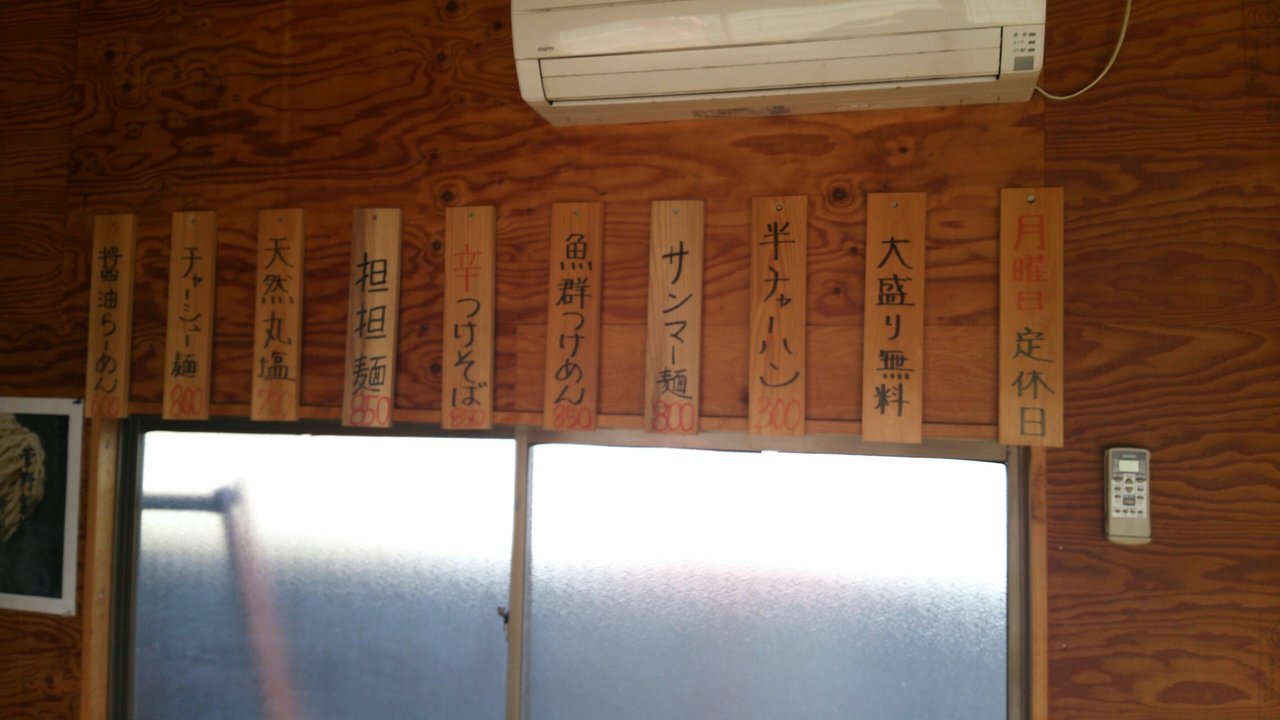 月曜日定休日
大盛り無料
半チャーハン 300
サンマー麺 800
魚群つけめん 850
辛つけそば 850
担担麺 850
天然丸塩 700
チャーシュー麺 800
醤油らーめん
SANYO